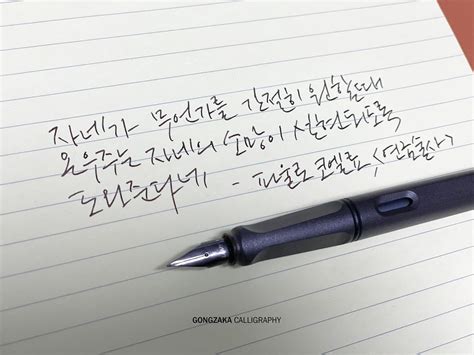 자네가 무언가를 간절히 원할 때
온 우주는 자네의 소망이 실현되도록
도와준다네 - 파울로 코엘료 <연금술사>
GONGZAKA CALLIGRAPHY